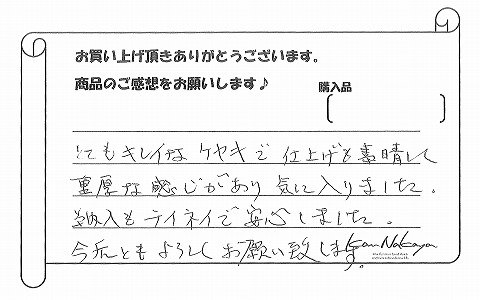 お買い上げ頂きありがとうございます。
商品のご感想をお願いします♪
購入品
とてもキレイなケヤキで 仕上げも素晴しく
重厚な感じがあり 気に入りました。
納入もテイネイで安心しました。
今后ともよろしくお願い致します。